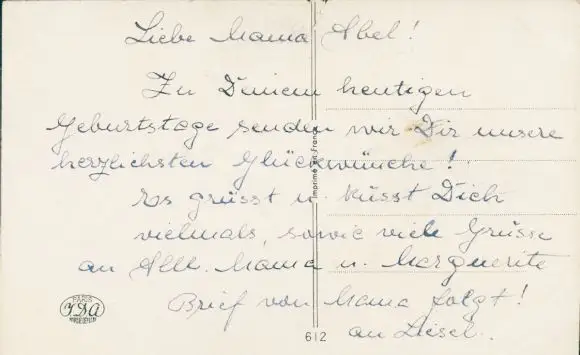 Liebe Mama Abel!
Zu Deinem heutigen
Geburtstage senden wir Dir unsere
herzlichsten Glückwünche!
Es grüsst u. küsst Dich
vielmals, sowie viele Grüsse
an Alle. Mama u. Marguerite
Brief von Mama folgt!
an Liesel.
Imprimé en France
PARIS
IDA
612